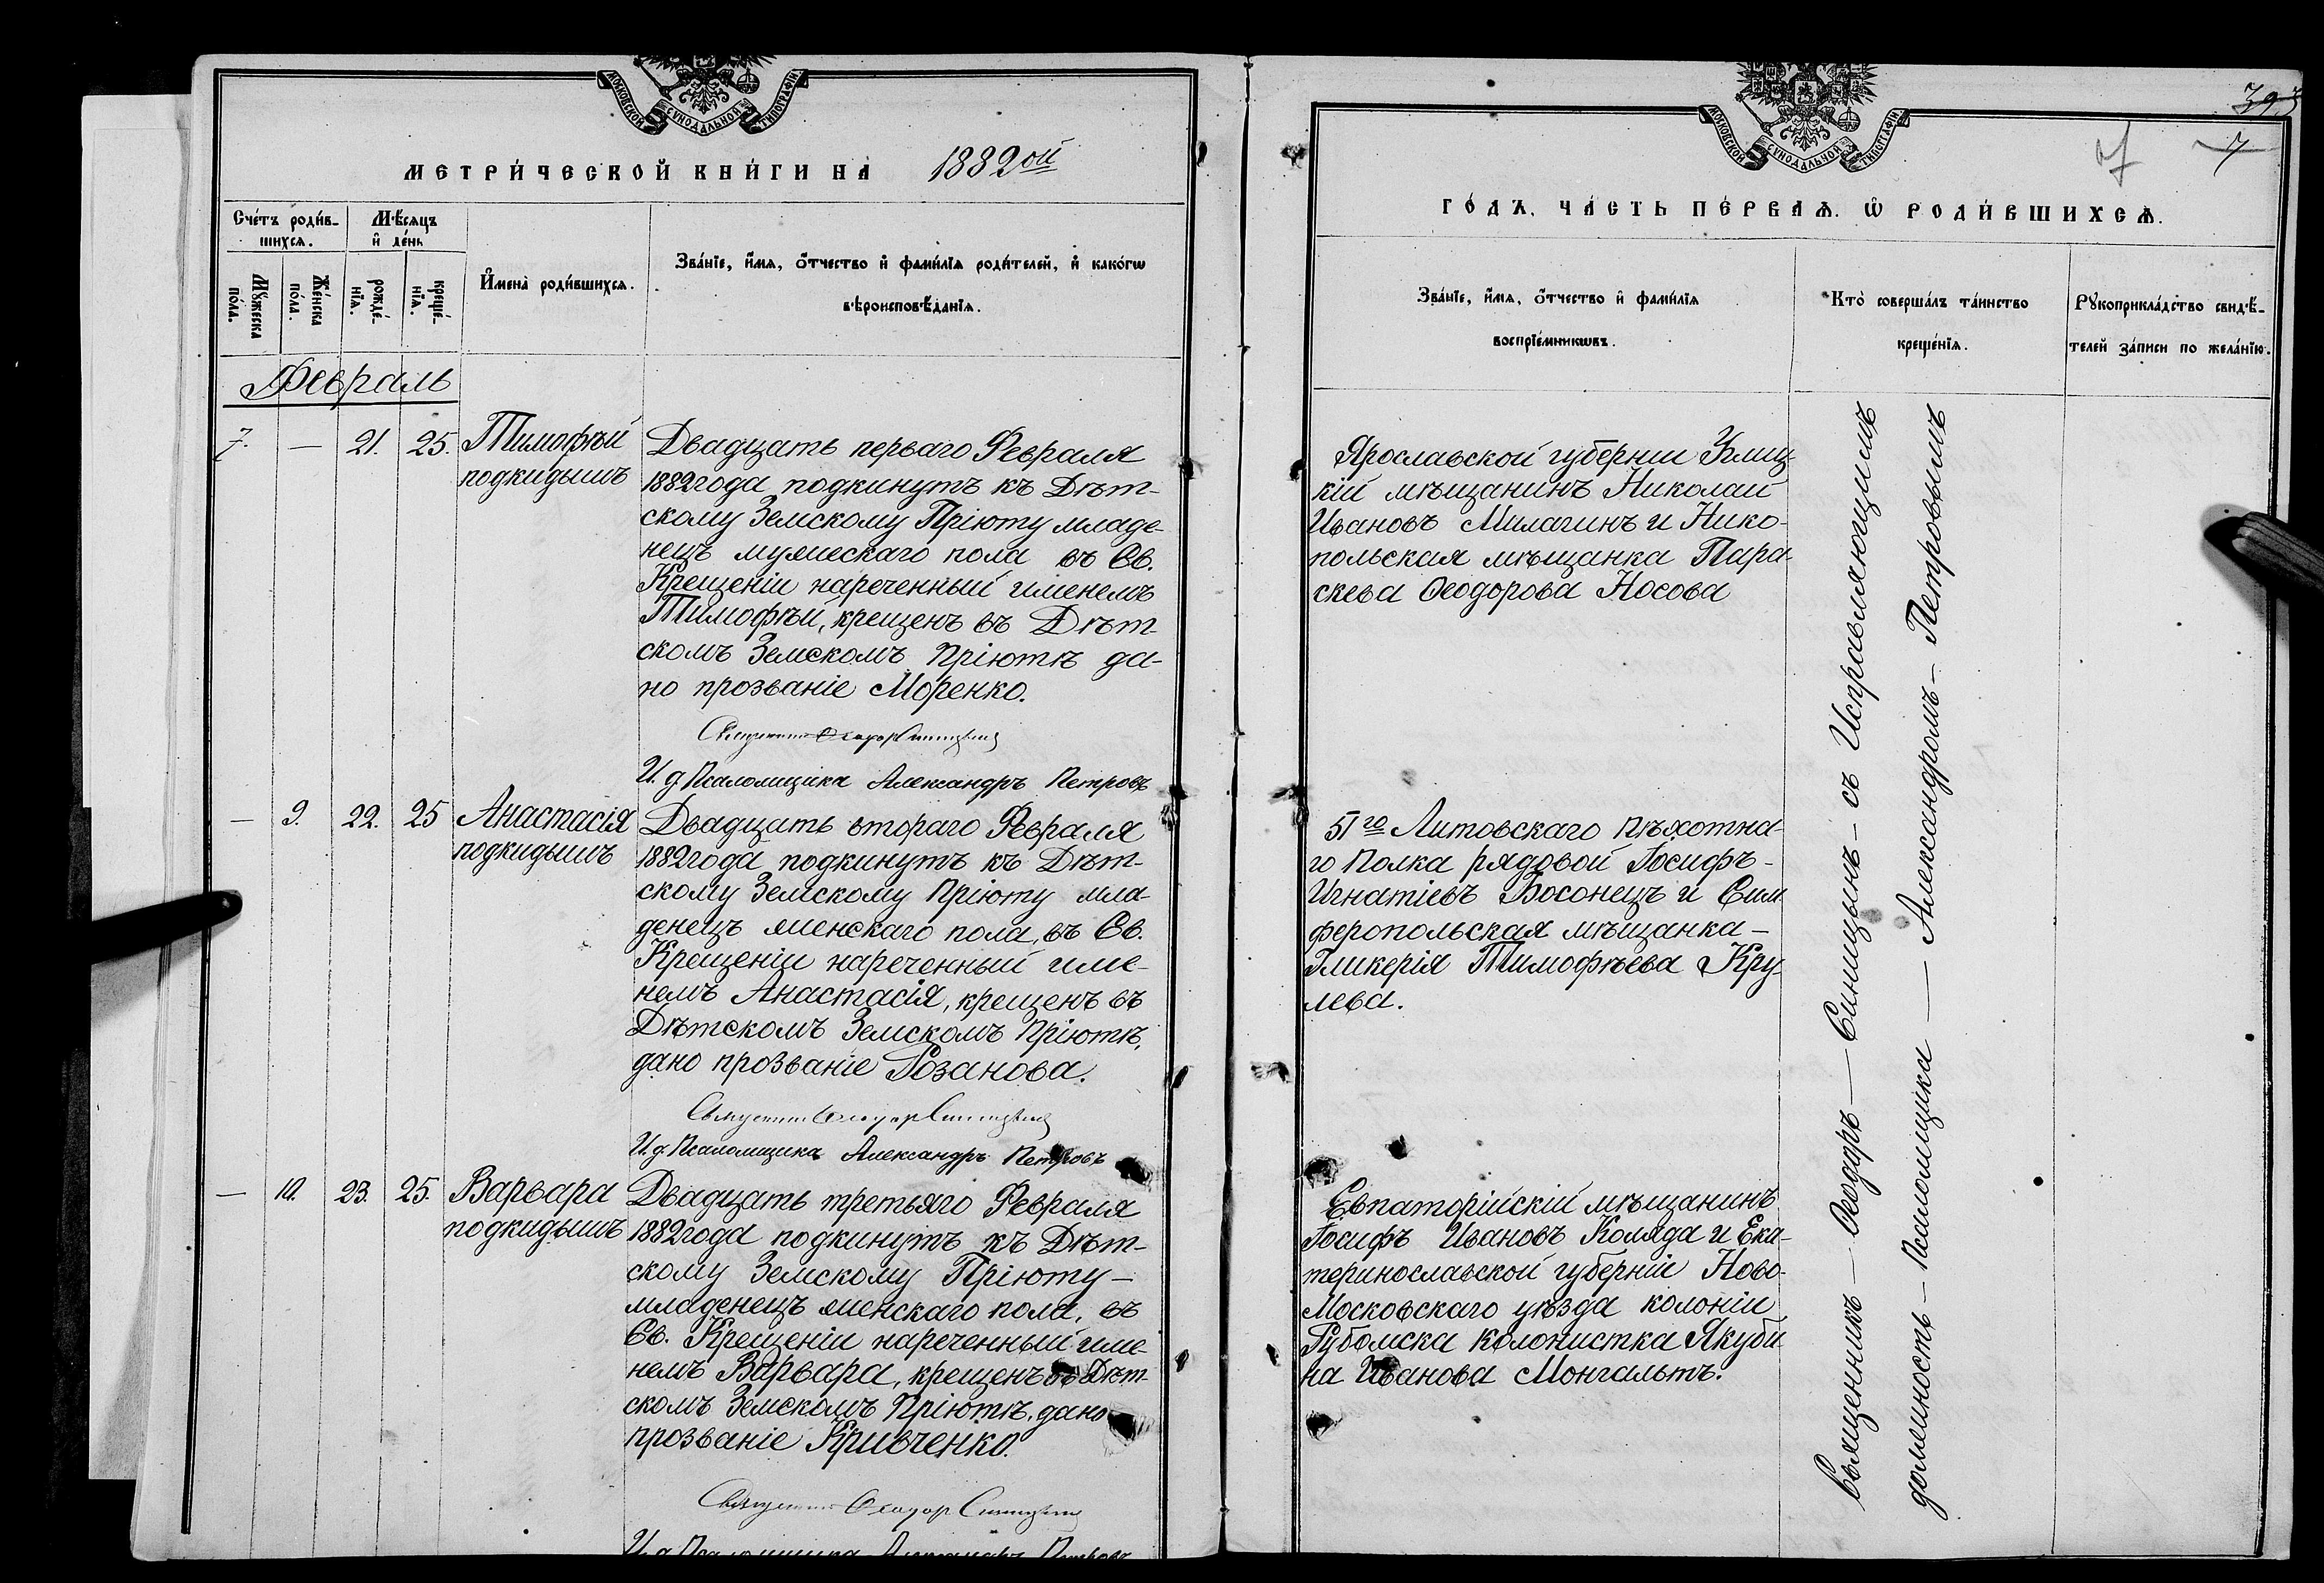 МОСКОВСКОЙ СѴНОДАЛЬНОЙ ТИПОГРАФІИ
МЕТРИ́ЧЕСКОЙ КНИ́ГИ НА 1882ой
Сче́тъ роди́в-
шихся.
Мѣ́сяцъ
и҆ де́нь
Мꙋ́жеска
по́ла.
Же́нска
по́ла.
рожде́-
нїя.
креще́-
нїя.
И҆мена̀ роди́вшихся.
Зва́нїе, и҆́мя, о҆́тчество и҆ фами́лїя роди́телей, и҆ како́гѡ
вѣроисповѣ́данїя.
Февраль
7. — 21. 25. Тимофѣй
подкидышъ
Двадцать перваго Февраля
1882 года подкинутъ къ Дѣт-
скому Земскому Пріюту младе-
нецъ мужескаго пола въ Св.
Крещеніи нареченный именемъ
Тимофѣй, крещенъ въ Дѣт-
скомъ Земскомъ Пріютѣ да-
но прозваніе Моренко.
Священникъ Ѳеодоръ Синицынъ
И. д. Псаломщика Александръ Петровъ
— 9. 22. 25 Анастасія
подкидышъ
Двадцать втораго Февраля
1882 года подкинутъ къ Дѣт-
скому Земскому Пріюту мла-
денецъ женскаго пола, въ Св.
Крещеніи нареченный име-
немъ Анастасія, крещенъ въ
Дѣтскомъ Земскомъ Пріютѣ,
дано прозваніе Розанова.
Священникъ Ѳеодоръ Синицынъ
И. д. Псаломщика Александръ Петровъ
— 10. 23. 25. Варвара
подкидышъ
Двадцать третьяго Февраля
1882 года подкинутъ къ Дѣт-
скому Земскому Пріюту —
младенецъ женскаго пола, въ
Св. Крещеніи нареченный име-
немъ Варвара, крещенъ въ Дѣт-
скомъ Земскомъ Пріютѣ, дано
прозваніе Кривченко.
Священникъ Ѳеодоръ Синицынъ
И. д. Псаломщика Александръ Петровъ
МОСКОВСКОЙ СѴНОДАЛЬНОЙ ТИПОГРАФІИ
393
7
ГО́ДЪ, ЧА́СТЬ ПЕ́РВАЯ. Ѡ҆ РОДИ́ВШИХСЯ.
Зва́нїе, и҆́мя, о҆́тчество и҆ фами́лїя
воспрїе́мникѡвъ.
Кто̀ соверша́лъ та́инство
креще́нїя.
Рꙋкоприкла́дство свидѣ́-
телей за́писи по жела́нїю.
Ярославской губерніи Углиц-
кій мѣщанинъ Николай
Ивановъ Милагинъ и Нико-
польская мѣщанка Пара-
скева Ѳеодорова Носова
51го Литовскаго пѣхотна-
го Полка рядовой Іосифъ -
Игнатіевъ Босонецъ и Сим-
феропольская мѣщанка —
Гликерія Тимофѣева Кру-
лева.
Евпаторійскій мѣщанинъ
Іосифъ Ивановъ Коляда и Ека-
теринославской губерніи Ново-
Московскаго уѣзда колоніи
колонистка Якуби-
на Иванова Монгальтъ.
Священникъ — Ѳеодоръ — Синицынъ — съ Исправляющимъ
должность — Псаломщика — Александромъ — Петровымъ